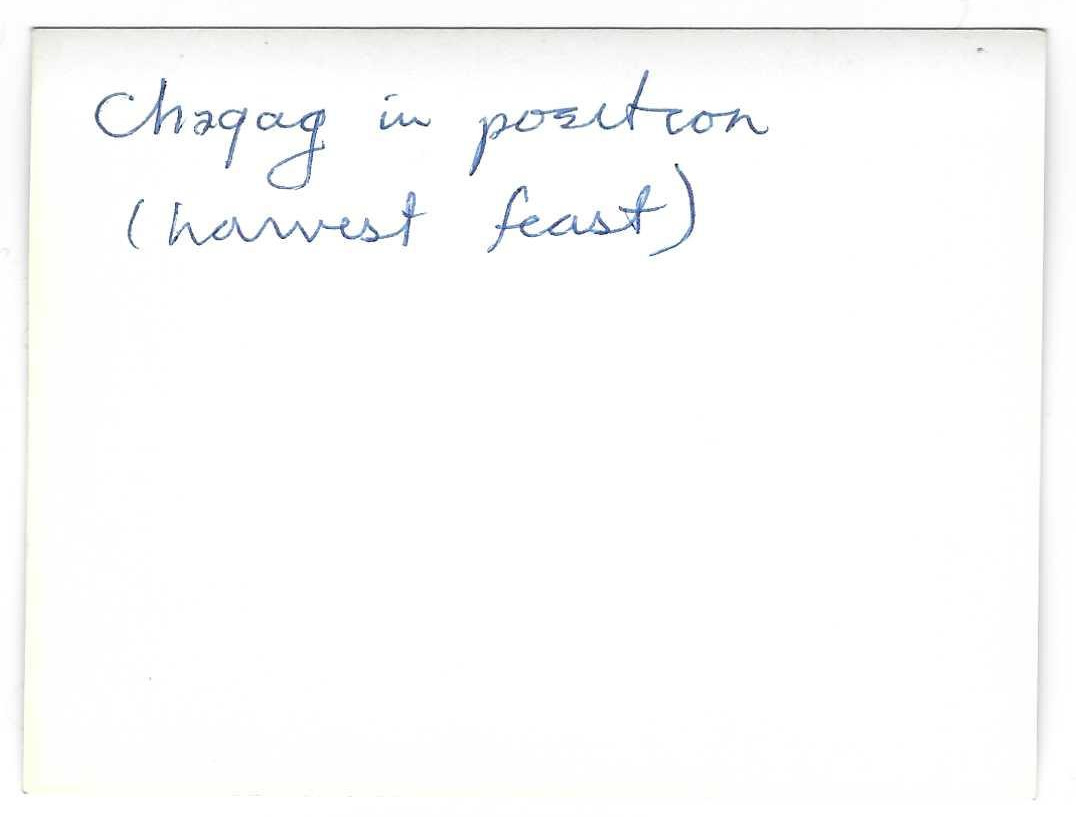 Chagag in position
(harvest feast)